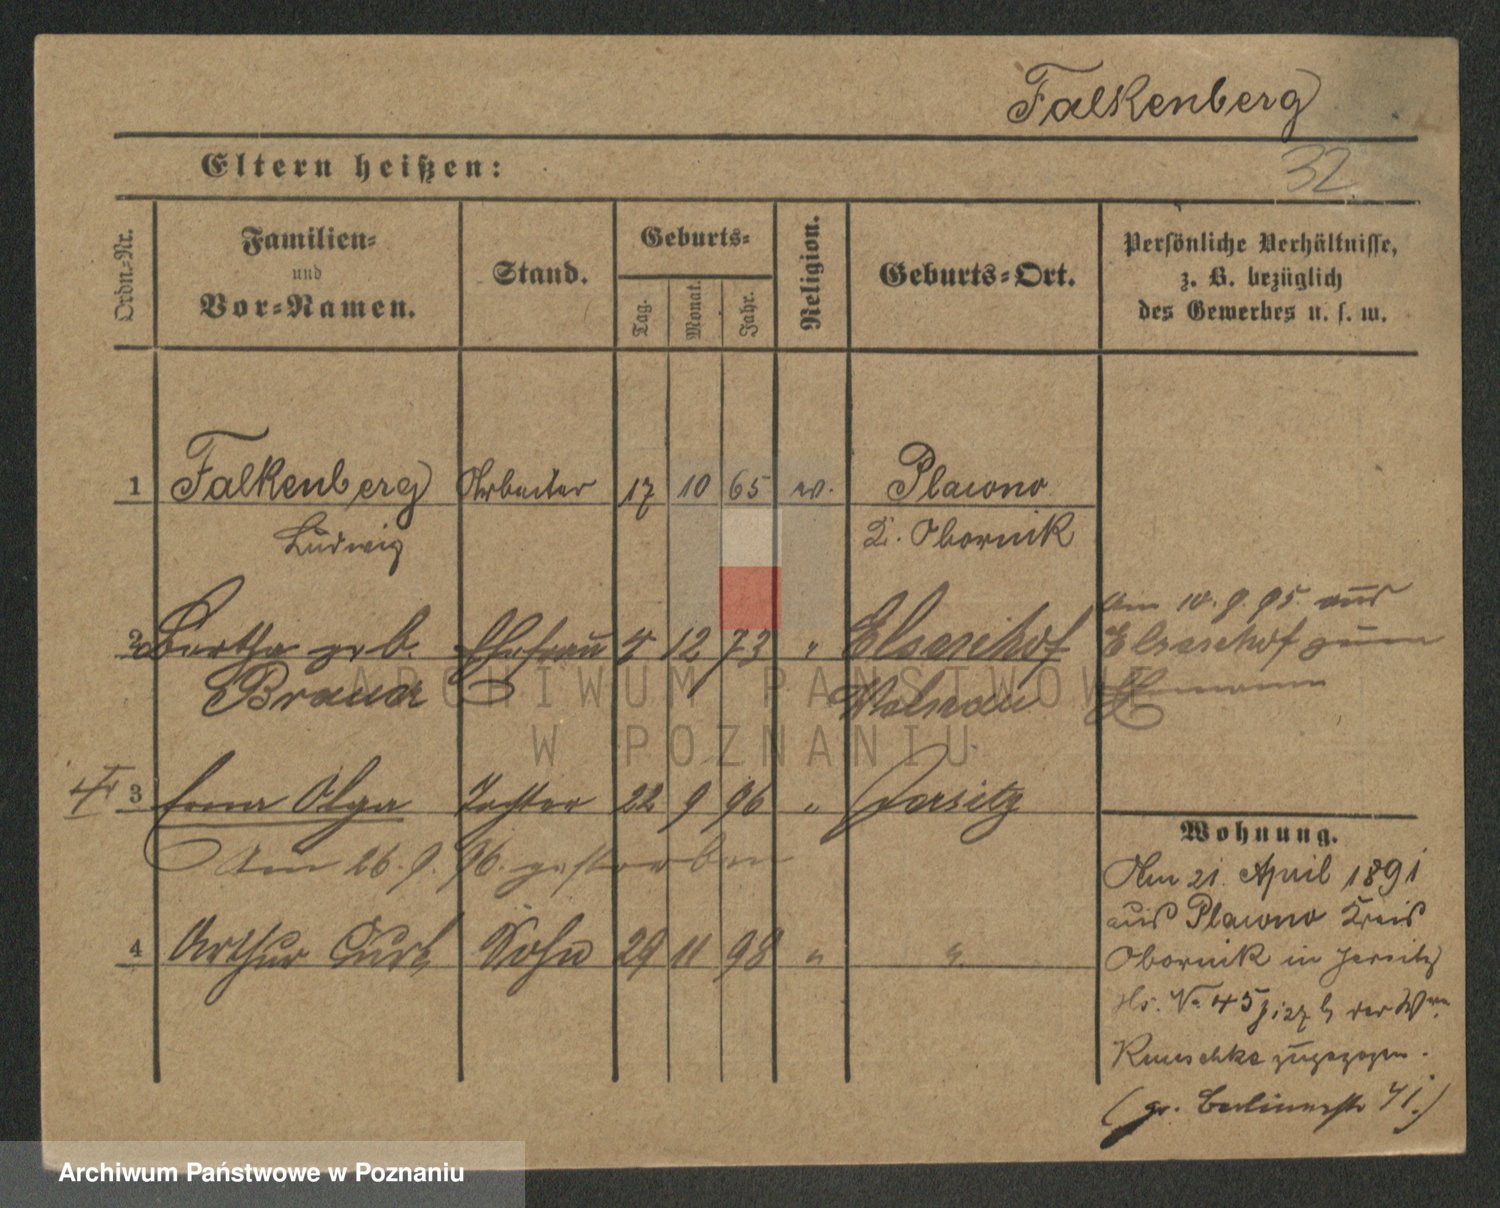 Falkenberg
32
Eltern heißen:
Ordn.-Nr.
Familien-
und
Vor-Namen.
Stand.
Geburts-
Tag.
Monat.
Jahr.
Religion.
Geburts-Ort.
Persönliche Verhältnisse,
z. B. bezüglich
des Gewerbes u. s. w.
1 Falkenberg Arbeiter 17 10 65 ev. Placono
Ludwig K. Obornik
2 Bertha geb. Ehefrau 4 12 73 " Elsenhof
Brauer
Am 10.9.95. aus
Elsenhof zum
Ehemann
3 Erna Olga Tochter 22 9 96 " Jersitz
Am 26.9.96. gestorben
4 Arthur Curt Sohn 29 11 98 " "
Wohnung.
Am 21. April 1891
aus Placono Kreis
Obornik in Jersitz
No 45 der
zugezogen.
(gr. Berlinerstr 41.)
ARCHIWUM PAŃSTWOWE
W POZNANIU
Archiwum Państwowe w Poznaniu